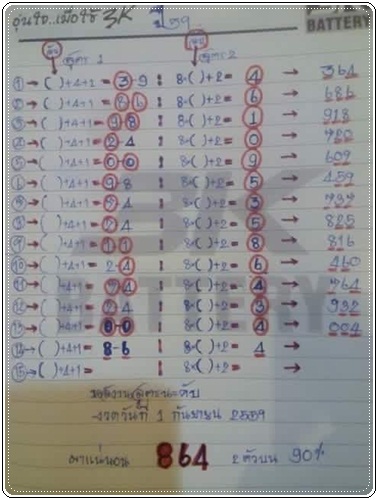 อุ่นใจ..เมื่อใช้ 3K ปี 59
BATTERY
สูตร 1 สูตร 2
① → ( )+4+1 = 3-9 8-( )+2 = 4 → 364
② → ( )+4+1 = 8 6 8-( )+2 = 6 → 686
③ → ( )+4+1 = 9 8 8-( )+2 = 1 → 918
④ → ( )+4+1 = 2-4 8-( )+2 = 0 → 720
⑤ → ( )+4+1 = 0-0 8-( )+2 = 9 → 609
⑥ → ( )+4+1 = 9-8 8-( )+2 = 5 → 459
⑦ → ( )+4+1 = 7 4 8-( )+2 = 3 → 737
⑧ → ( )+4+1 = 2 4 8-( )+2 = 5 → 825
⑨ → ( )+4+1 = 1 1 8-( )+2 = 8 → 816
⑩ → ( )+4+1 = 2-4 8-( )+2 = 6 → 460
⑪ → ( )+4+1 = 7 4 8-( )+2 = 4 → 764
⑫ → ( )+4+1 = 2 4 8-( )+2 = 3 → 932
⑬ → ( )+4+1 = 0-0 8-( )+2 = 4 → 004
⑭ → ( )+4+1 = 8-6 8-( )+2 = 4 →
⑮ → ( )+4+1 = 8-( )+2 = →
3K
BATTERY
งวดวันที่ 1 กันยายน 2559
มาแน่นอน 864 2 ตัวบน 90%